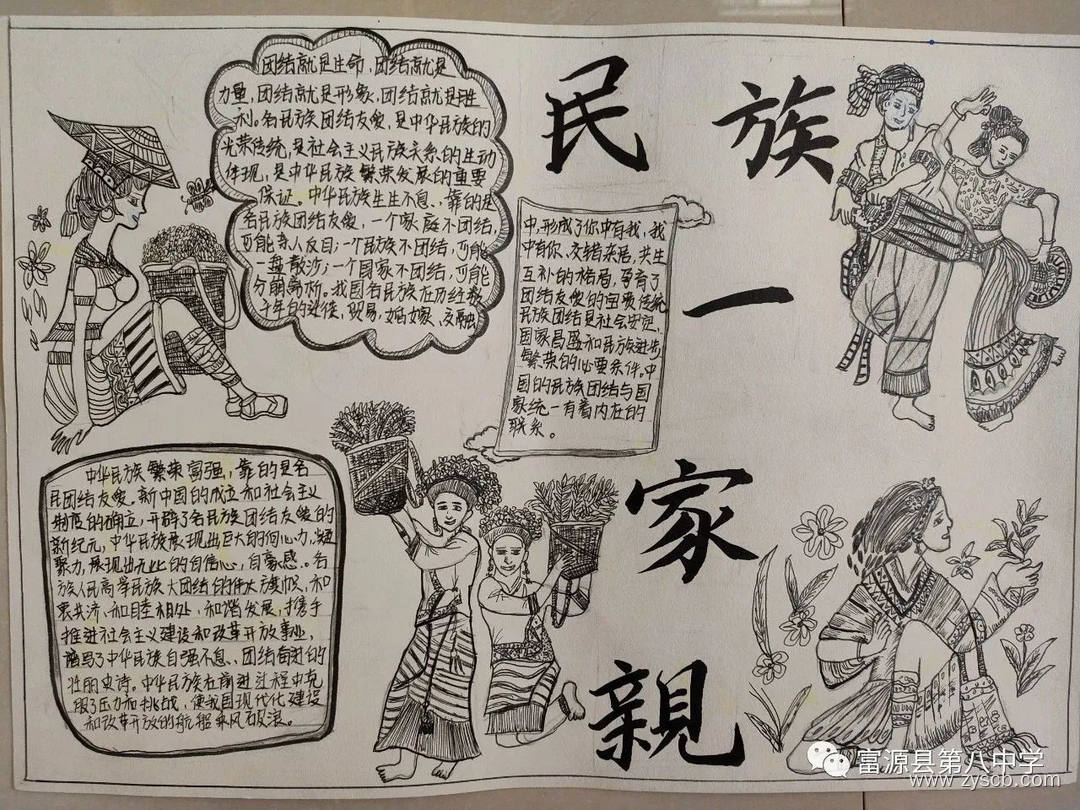 团结就是生命,团结就是
力量,团结就是形象,团结就是胜
利。各民族团结友爱,是中华民族的
光荣传统,是社会主义民族关系的生动
体现,是中华民族繁荣发展的重要
保证。中华民族生生不息、靠的是
各民族团结友爱,一个家庭不团结,
可能亲人反目;一个民族不团结,可能
一盘散沙;一个国家不团结,可能
分崩离析。我国各民族在历经数
千年的迁徙,贸易,婚嫁,交融
中,形成了你中有我,我
中有你,交错杂居,共生
互补的格局,孕育了
团结友爱的宝贵传统
民族团结是社会安定、
国家昌盛和民族进步
繁荣的必要条件。中
国的民族团结与国
家统一有着内在的
联系。
民族
一
家
親
中华民族繁荣富强,靠的是各
民团结友爱。新中国的成立和社会主义
制度的确立,开辟了各民族团结友爱的
新纪元,中华民族展现出巨大的向心力,凝
聚力,展现出无比的自信心,自豪感。各
族人民高举民族大团结的伟大旗帜,和
衷共济、和睦相处、和谐发展,携手
推进社会主义建设和改革开放事业,
谱写了中华民族自强不息、团结奋进的
壮丽史诗。中华民族在前进过程中克
服了压力和挑战,使我国现代化建设
和改革开放的航船乘风破浪。
富源县第八中学
www.zyscb.com